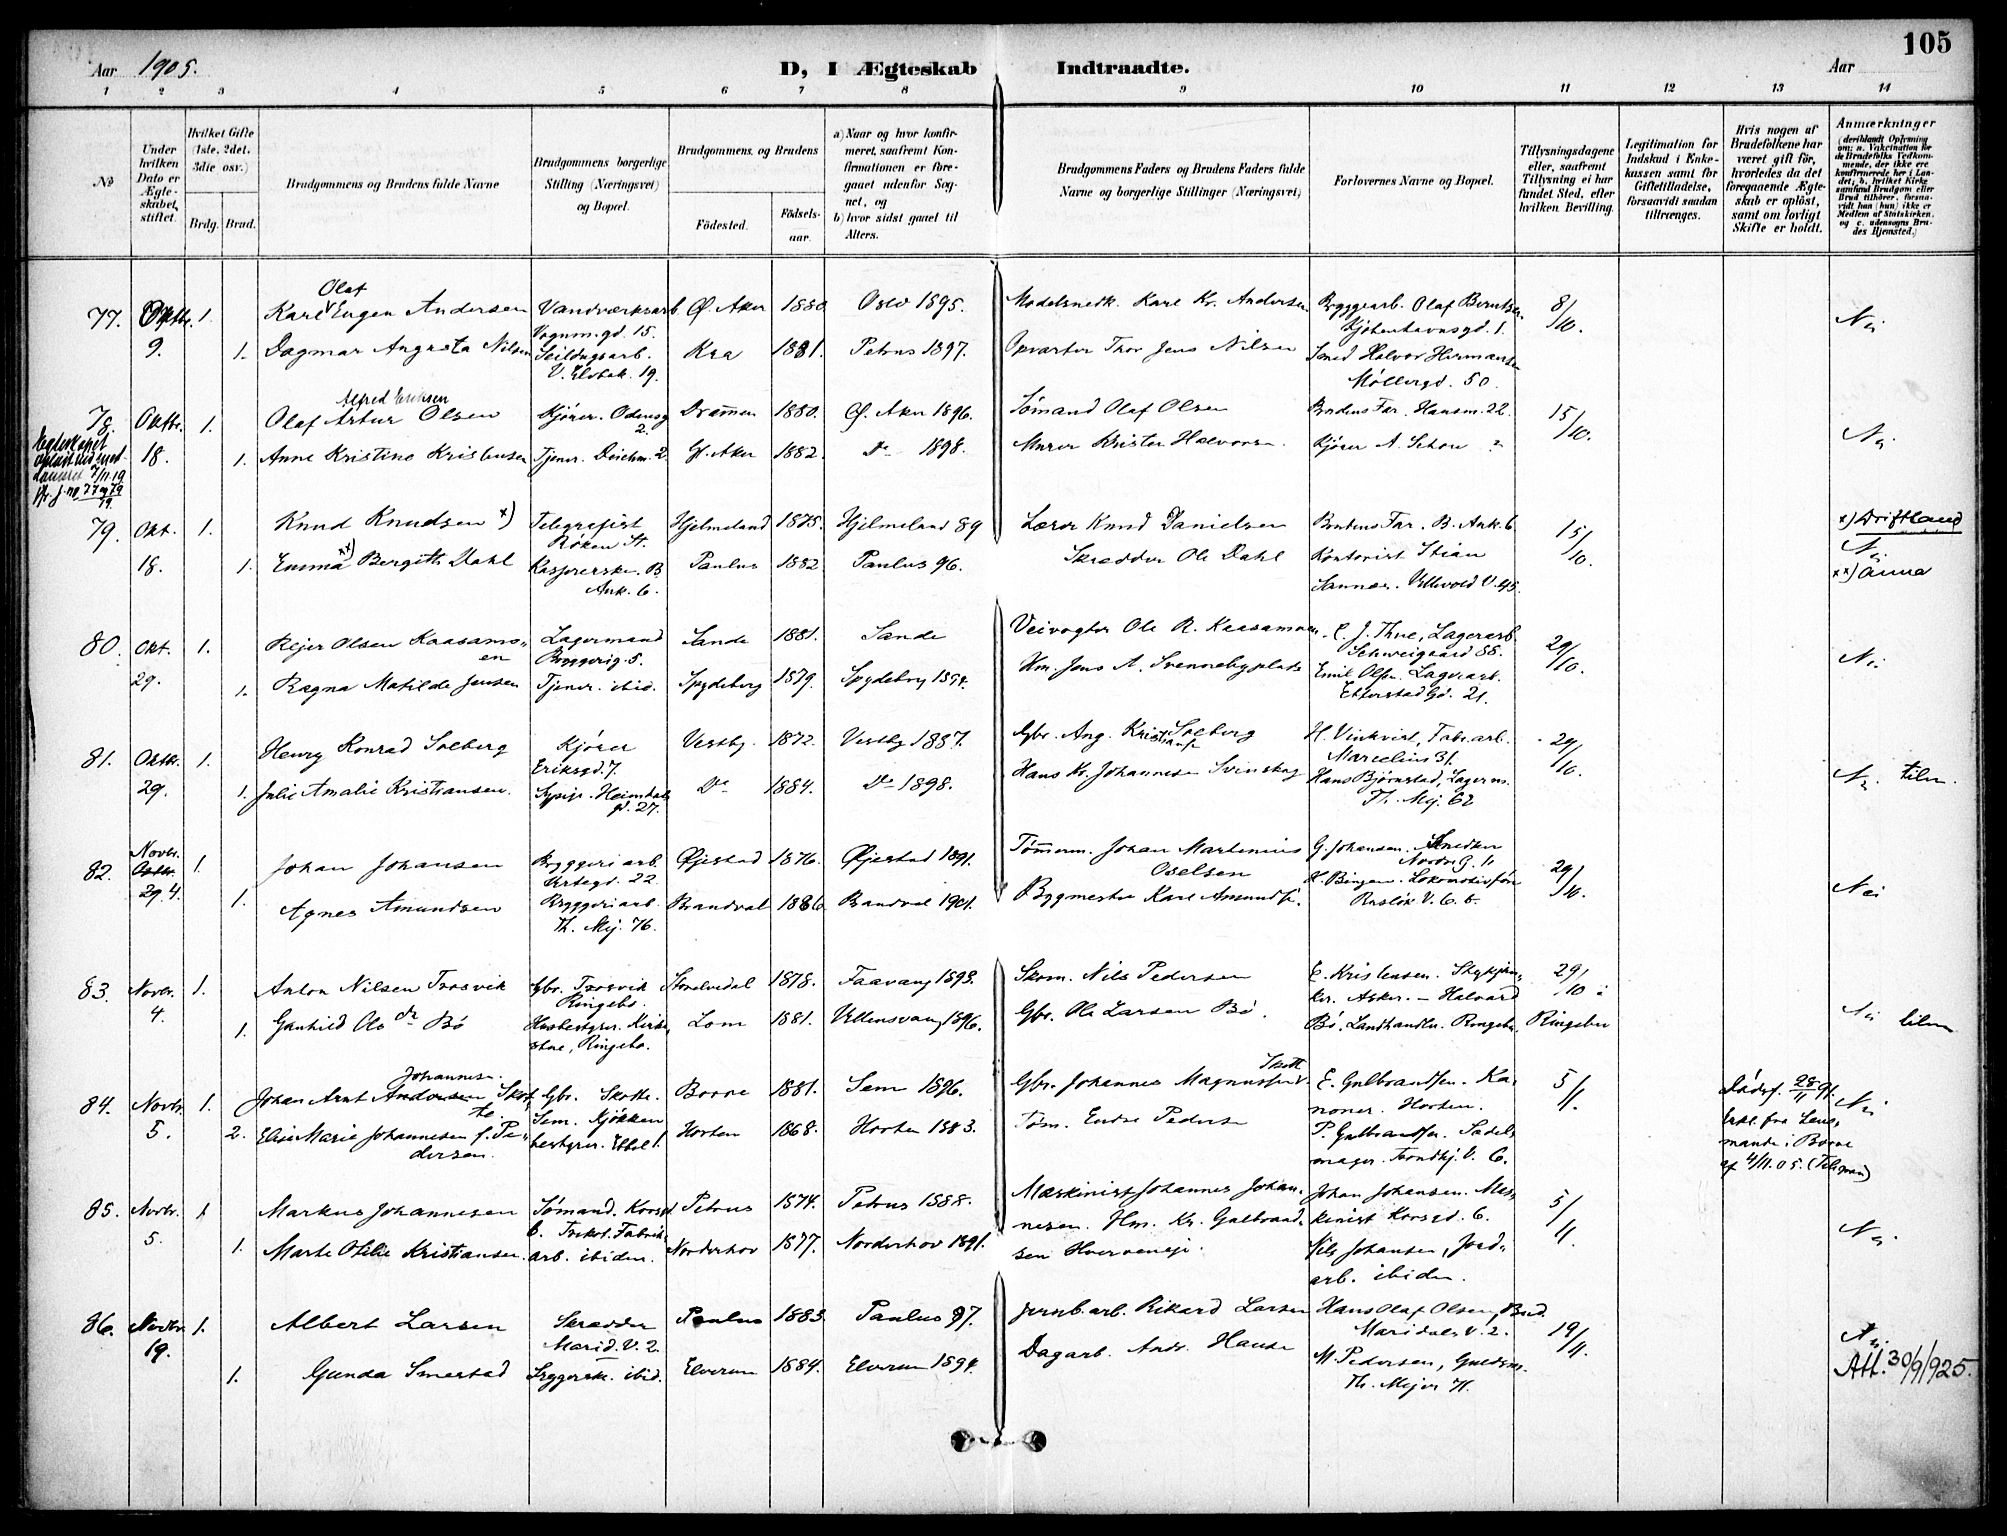 105
Aar 1905.
D, I Ægteskab Indtraadte.
Aar
1 2 3 4 5 6 7 8 9 10 11 12 13 14
No
Under hvilken Dato er Ægteskabet stiftet.
Hvilket Gifte (1ste, 2det, 3die osv.)
Brdg. Brud.
Brudgommens og Brudens fulde Navne
Brudgommens borgerlige Stilling (Næringsvei) og Bopæl.
Brudgommens og Brudens
Födested.
Födselsaar.
a) Naar og hvor konfirmeret, saafremt Konfirmationen er foregaaet udenfor Sognet, og
b) hvor sidst gaaet til Alters.
Brudgommens Faders og Brudens Faders fulde Navne og borgerlige Stillinger (Næringsvei)
Forlovernes Navne og Bopæl.
Tillysningsdagene eller, saafremt Tillysning ei har fundet Sted, efter hvilken Bevilling.
Legitimation for Indskud i Enkekassen samt for Giftetilladelse, forsaavidt saadan tiltrænges.
Hvis nogen af Brudefolkene har været gift för, hvorledes da det foregaaende Ægteskab er oplöst, samt om lovligt Skifte er holdt.
Anmærkninger
77. Oktbr. 1. Karl Olaf Eugen Andersen Vandværksarb. Ø. Aker 1880 Oslo 1895. Modelsnedk. Karl Kr. Andersen Byggearb. Olaf Berntsen 8/10. Nei
Vognm.gd. 15. Kjøbenhavnsgd. 1.
9. 1. Dagmar Augusta Nilsen Seildugsarb. Kra 1881. Petrus 1897. Opvarter Thor Jens Nilsen Smed Halvor Hermansen
V. Elvbak. 19. Møllergd. 50.
78. Oktbr. 1. Olaf Artur Alfred Eriksen Olsen Kjører. Drammen 1880. Ø. Aker 1896. Sømand Olaf Olsen Brudens Far. Hausm. 22. 15/10. Nei
18. 1. Anne Kristine Kristensen Tjener. Deichm. 2 Aker 1882. Do 1898. Murer Krister Halvorsen Kjører A. Schou
79. Okt. 1. Knud Knudsen x) Telegrafist Hjelmeland 1875. Hjelmeland 89 Lærer Knud Danielsen Brudens Far. B. Ank. 6 15/10. x) Driftland
Røken St. Nei
18. 1. Emma xx) Bergitte Dahl Kasjererske. B. Paulus 1882 Paulus 96. Skrædder Ole Dahl Kontorist Stian xx) Anna
Ank. 6. Sannæs. Ullevold V. 45.
80. Okt. 1. Rejer Olsen Kaasamoen Lagermand Sande 1881. Sande Veivogter Ole R. Kaasamoen C. J. Thue, Lagerarb. 29/10. Nei
Bryggerig. 5. Schweigaard 88.
29. 1. Ragna Matilde Jensen Tjener. ibid. Spydeberg 1879. Spydeberg 1894. Hm. Jens A. Svennebyplads Emil Olsen. Lagerarb.
Etterstad Gd. 21.
81. Oktbr. 1. Henry Konrad Solberg Kjører Vestby. 1872. Vestby 1887. Gbr. Ang. Kristiansen Solberg H. Vinkvist, Fabr.arb. 29/10.
Eriksgd. 7. Marcelius 31.
29. 1. Julie Amalie Kristiansen. Sypige. Heimdals gd. 27. Do 1884. Do 1898. Hans Kr. Johannesen Svinskog Hans Bjørnstad, Lagerm. Nei tilm.
Th. Mej. 62
82. Novbr. 1. Johan Johansen Bryggeriarb. Øjestad 1876. Øjestad 1891. Tømmerm. Johan Martinius Oselsen G. Johansen. Snedker 29/10. Nei
Urtegd. 22 Nordre G. 11
4. 1. Agnes Amundsen Bryggeriarb. Brandval 1886 Brandval 1901. Bygmester Karl Amundsen. Bingen. Lokomotivfører
Th. Mej. 76.
83. Novbr. 1. Anton Nilsen Trosvik Gbr. Trosvik 1878. Faavang 1893. Skom. Nils Pedersen E. Kristensen. 29/10 i
Ringebo. Asker. – Halvard
4. 1. Gunhild Olsdr Bø Husbestyrer. Lom 1881. Ullensvang 1896. Gbr. Ole Larsen Bø. Bø. Landhandler. Ringebu. Ringebu Nei tilm
Ringebo.
84. Novbr. 1. Johan Arnt Andersen Johannesen Skotte. Gbr. Skotte. Borre 1881. Sem 1896. Gbr. Johannes Magnussen Skotte E. Gulbrandsen. Kanoner. Horten. 5/11. Nei
5. 2. Elise Marie Johannesen f. Pedersen. Sem. Kjøkkenbestyrer. Horten 1868. Horten 1883. Tøm. Endre Pedersen P. Gulbrandsen. Sadelmager. Trondhj. V. 6.
mande i Borre
af 4/11.05.
85. Novbr. 1 Markus Johannesen Sømand. Korsgd Petrus 1874. Petrus 1888. Maskinist Johannes Johannesen. Johan Johansen. Maskinist Korsgd. 6. 5/11. Nei
5. 1. Marte Otilie Kristiansen. 6. Trikot. Fabrikarb. ibidem. Norderhov 1877. Norderhov 1891. Hm. Kr. Gulbrandsen Hverveneje. Nils Johansen, Jordarb. ibidem.
86. Novbr. 1. Albert Larsen Skrædder Paulus 1883 Paulus 97. Jernb.arb. Rikard Larsen Hans Olaf Olsen, Bud. 19/11. Nei.
Marid. V. 2. Maridals V. 2.
19. 1. Gunda Smestad ibid. Elverum 1884. Elverum 1894. Dagarb. Andr. Hansen M. Pedersen, Guldsm. Att. 30/9/925.
Th. Mejer